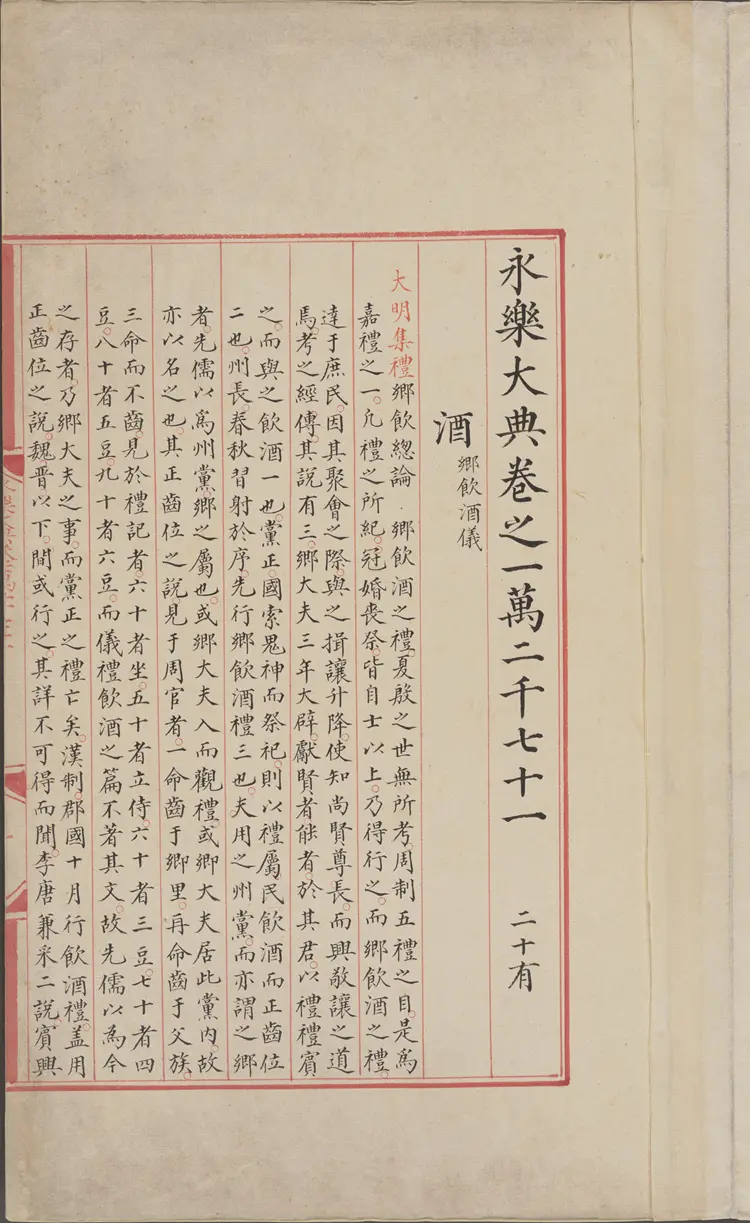 永樂大典卷之一萬二千七十一 二十有
酒 鄉飲酒儀
大明集禮鄉飲總論.鄉飲酒之禮。夏殷之世無所考。周制五禮之目。是爲
嘉禮之一。凡禮之所紀。冠婚喪祭。皆自士以上。乃得行之。而鄉飲酒之禮。
達于庶民。因其聚會之際。與之揖讓升降。使知尚賢尊長。而興敬讓之道
焉。考之經傳。其說有三。鄉大夫三年大辟。獻賢者能者。於其君。以禮禮賓
之。而與之飲酒一也。黨正。國索鬼神而祭祀。則以禮屬民飲酒而正齒位
二也。州長。春秋習射於序。先行鄉飲酒禮三也。夫用之州黨。而亦謂之鄉
者。先儒以爲州黨。鄉之屬也。或鄉大夫入而觀禮。或鄉大夫居此黨内。故
亦以名之也。其正齒位之說。見于周官者。一命齒于鄉里。再命齒于父族。
三命而不齒。見於禮記者。六十者坐。五十者立侍。六十者三豆。七十者四
豆。八十者五豆。九十者六豆。而儀禮飲酒之篇不著其文。故先儒以為今
之存者。乃鄉大夫之事。而黨正之禮亡矣。漢制。郡國十月行飲酒禮。盖用
正齒位之說。魏晋以下。間或行之。其詳不可得而聞。李唐兼采二說。賓興